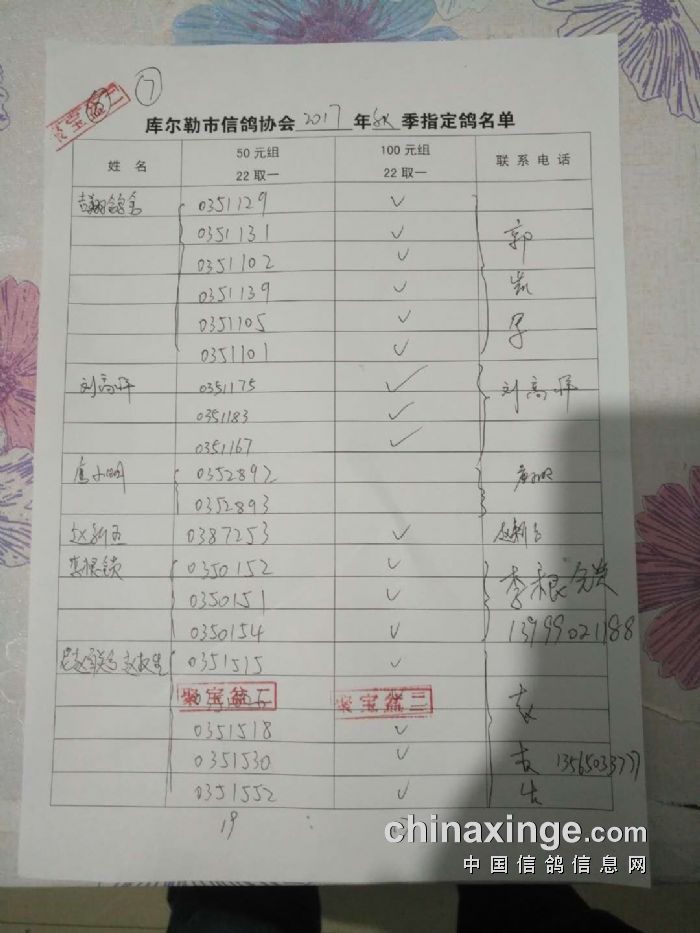 ⑦
聚宝盆二
库尔勒市信鸽协会 2017 年 秋 季指定鸽名单
姓 名 50元组 22取一 100元组 22取一 联系电话
0351129 ✓
0351131 ✓ 郭
0351102 ✓
0351139 ✓
0351105 ✓
0351101 ✓
刘高 0351175 ✓ 刘高
0351183 ✓
0351167 ✓
唐小明 0352892
0352893
0387253 ✓
李根锁 0350152 ✓ 李根锁
0350151 ✓
0350154 ✓ 13999021188
0351515 ✓
聚宝盆二 聚宝盆二
0351518 ✓
0351530 ✓ 13565033777
0351552 ✓
19
chinaxinge.com
中国信鸽信息网